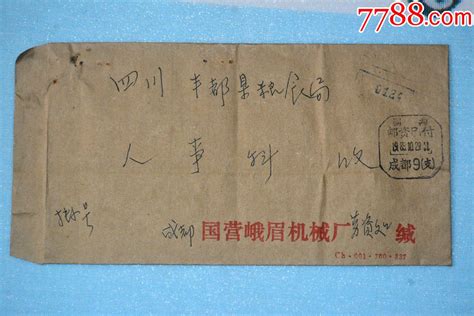 7788.com
四川 丰都县粮食局
0124
邮资已付
成都9(支)
人事科 收
挂号
成都 国营峨眉机械厂 劳资处 缄